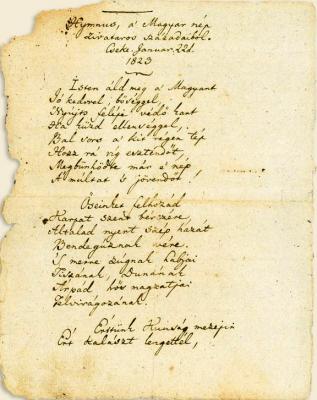 Hymnus, a' Magyar nép
zivataros századaiból.
Cseke. Januar. 22d.
1823
Isten áld meg a' Magyart
Jó kedvvel, bőséggel,
Nyújts feléje védő kart
Ha küzd ellenséggel;
Bal sors a' kit régen tép
Hozz rá víg esztendőt,
Megbünhödte már e' nép
A' multat 's jövendőt!
Őseinket felhozád
Kárpát szent bérczére,
Általad nyert szép hazát
Bendegúznak vére.
'S merre zúgnak habjai
Tiszának, Dunának
Árpád hős magzatjai
Felvirágozának.
Értünk Kunság mezejin
Ért kalászt lengettél,